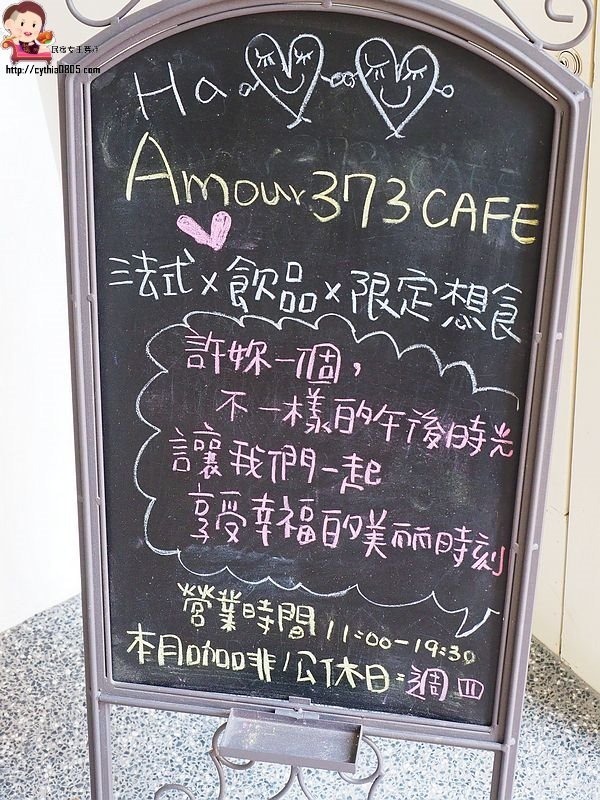 民宿女王芽月
http://cythia0805.com
Ha
Amour 373 CAFE
法式x飲品x限定想食
許妳一個,
不一樣的午後時光
讓我們一起
享受幸福的美丽時刻
營業時間 11:00-19:30
本月咖啡/公休日:週四